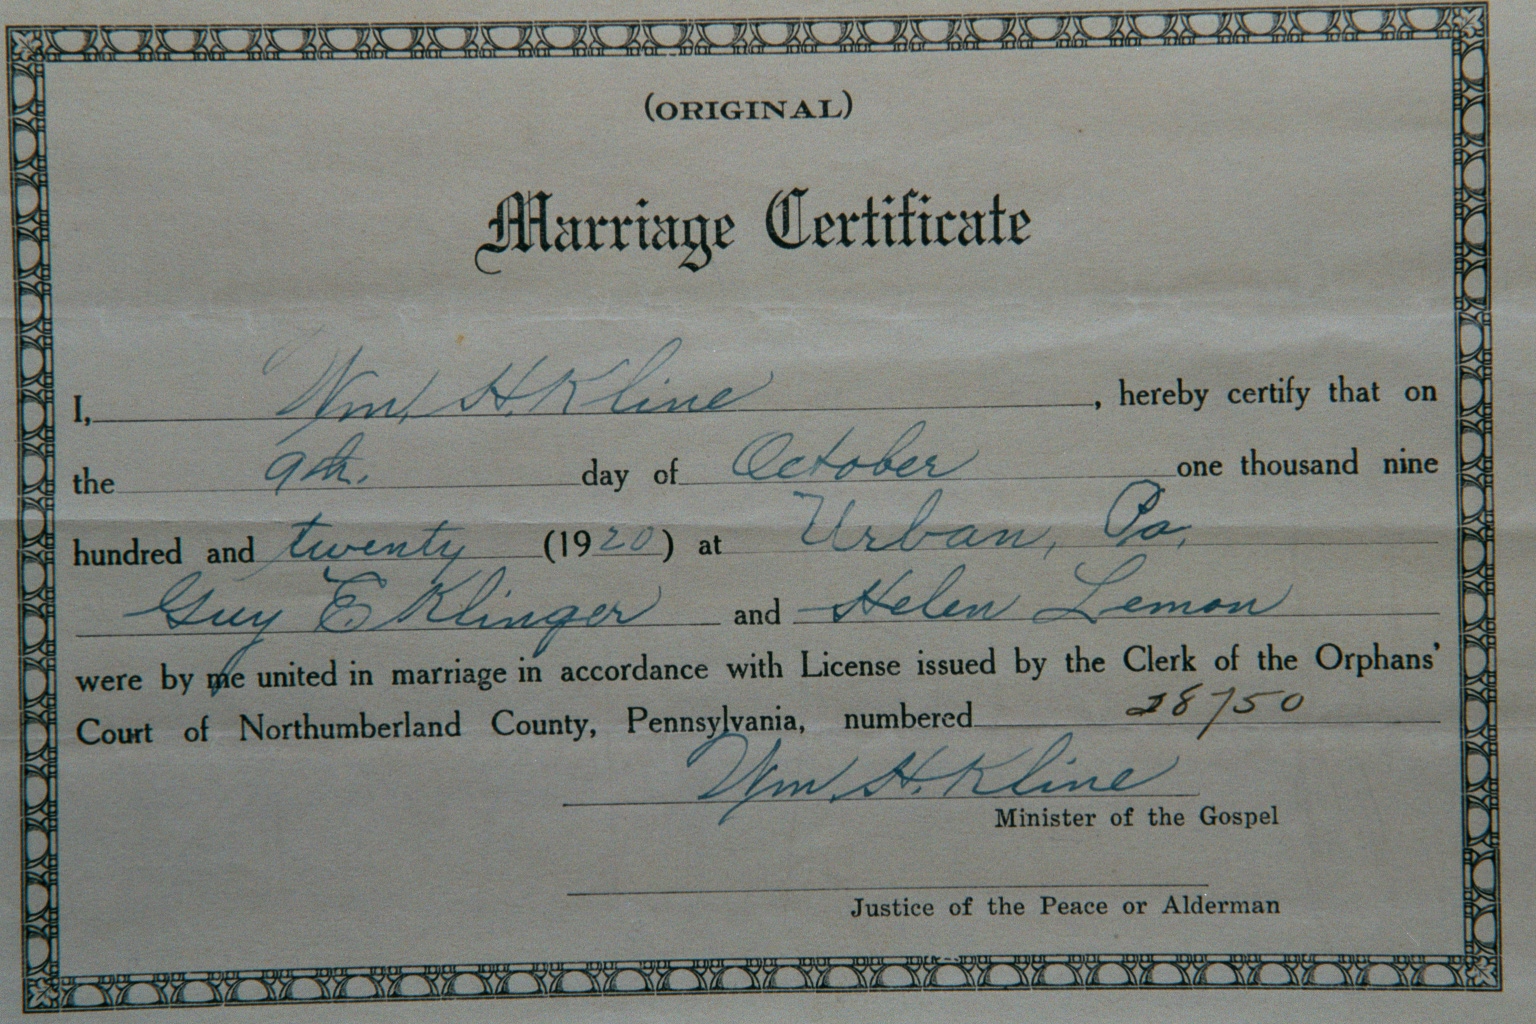 (ORIGINAL)
Marriage Certificate
I, Wm. H. Kline, hereby certify that on
the 9th. day of October one thousand nine
hundred and twenty (1920) at Urban, Pa.
Guy E Klinger and Helen Lemon
were by me united in marriage in accordance with License issued by the Clerk of the Orphans'
Court of Northumberland County, Pennsylvania, numbered 28750
Wm. H. Kline
Minister of the Gospel
Justice of the Peace or Alderman